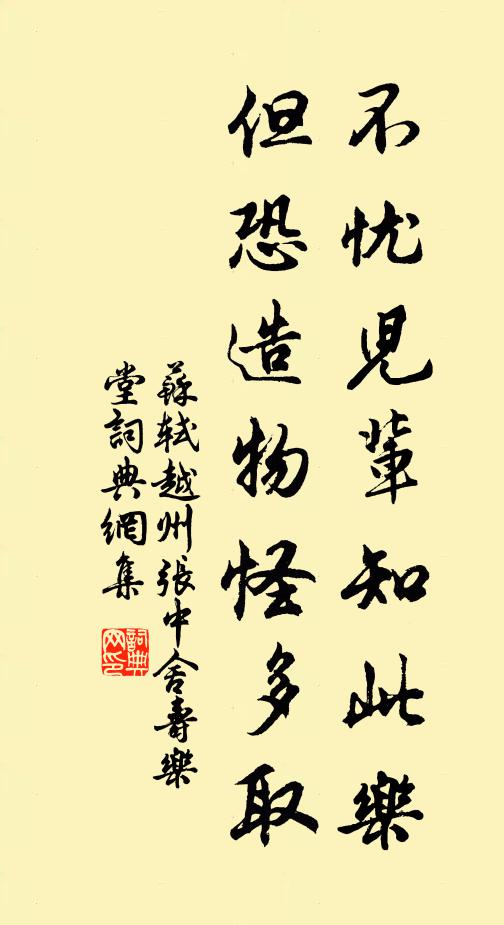 不忧兒輩知此樂
但恐造物怪多取
蘇軾越州張中舍壽樂
堂詞典網集
詞典
网印